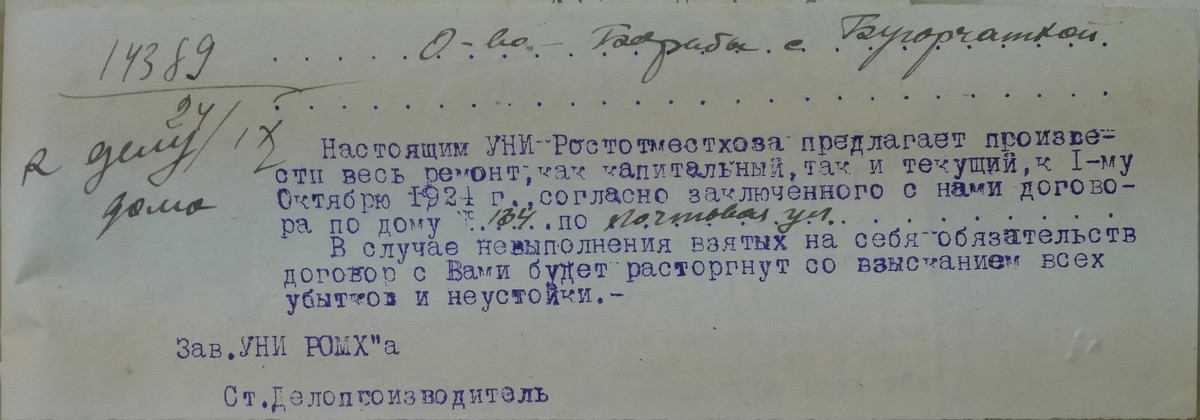 14389
О-во Борьбы с Бугорчаткой
24/IX
к делу
дома
Настоящим УНИ-Ростотместхоза предлагает произве-
сти весь ремонт, как капитальный, так и текущий, к I-му
Октябрю 1924 г., согласно заключенного с нами догово-
ра по дому № 134 по Почтовая ул.
В случае невыполнения взятых на себя обязательств
договор с Вами будет расторгнут со взысканием всех
убытков и неустойки.-
Зав.УНИ РОМХ"а
Ст.Делопроизводитель